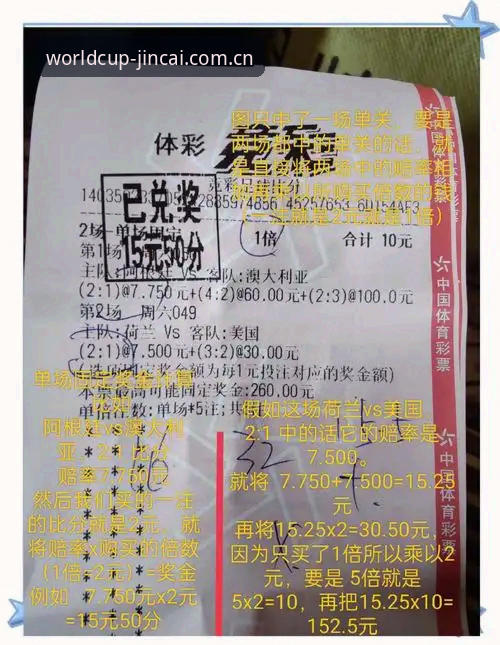 worldcup-jincai.com.cn
图只中了一场单关，要是
两场都中的单关的话，就
是直接将两场中的赔率相
（一注就是2元就是1倍）
体彩
已兑奖
15元50分
2场-单场固定
1倍
合计 10元
主队:阿根廷 Vs 客队:澳大利亚
(2:1)@7.750元+(4:2)@60.00元+(2:3)@100.0元
第2场 周六049
主队:荷兰 Vs 客队:美国
(2:1)@7.500元+(3:2)@30.00元
(选项固定奖金额为每1元投注对应的奖金额)
本票最高可能固定奖金:260.00元
单倍注数:单场*5注;共
中国体育彩票
中国体育彩票
中国体育彩票
单场固定奖金计算
阿根廷vs澳大利
亚，2:1 比分
赔率7.750元
然后我们买的一注
的比分就是2元，就
将赔率x购买的倍数
（1倍=2元）=奖金
例如 7.750元x2元
=15元50分
假如这场荷兰vs美国
2:1 中的话它的赔率是
7.500。
就将 7.750+7.500=15.25
元
再将15.25x2=30.50元，
因为只买了1倍所以乘以2
元，要是 5倍就是
5x2=10，再把15.25x10=
152.5元